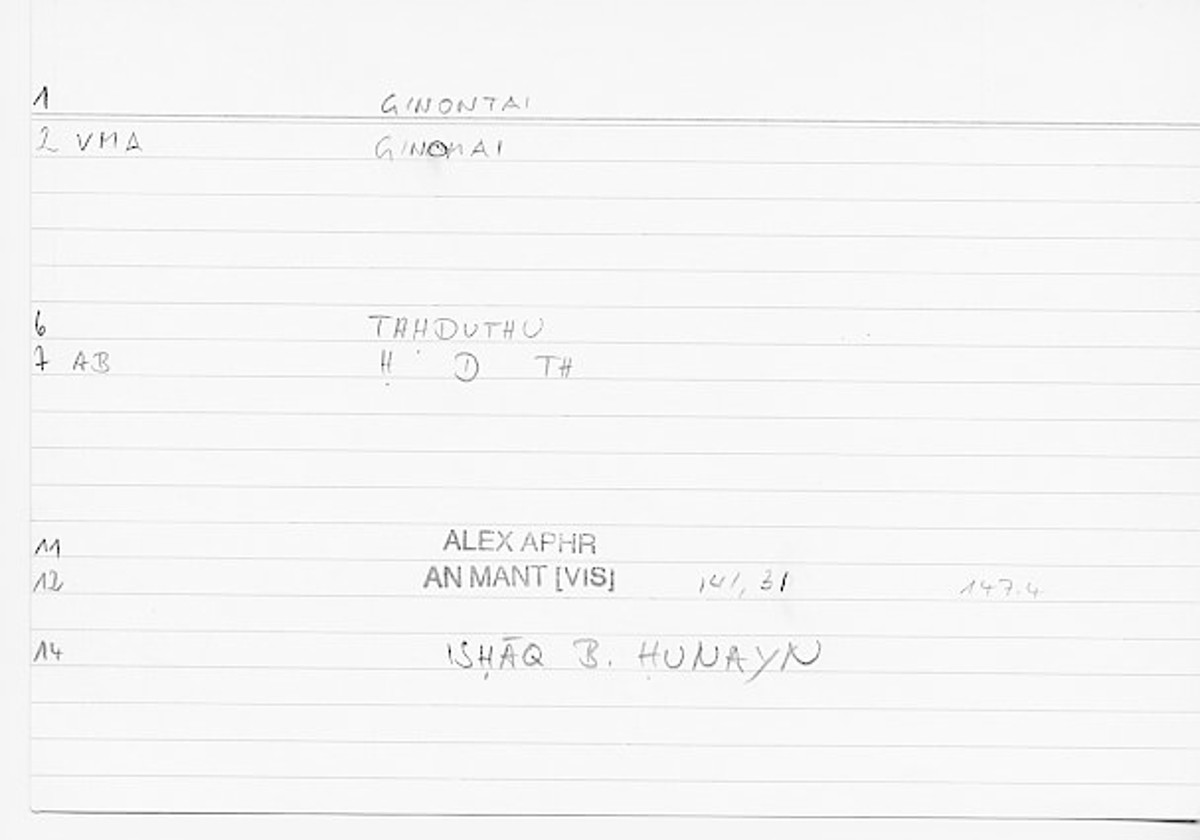 1 GINONTAI
2 VMA GINOMAI
6 TAHDUTHU
7 AB Ḥ D TH
11 ALEX APHR
12 AN MANT [VIS] 141, 31 147.4
14 ISḤĀQ B. ḤUNAYN